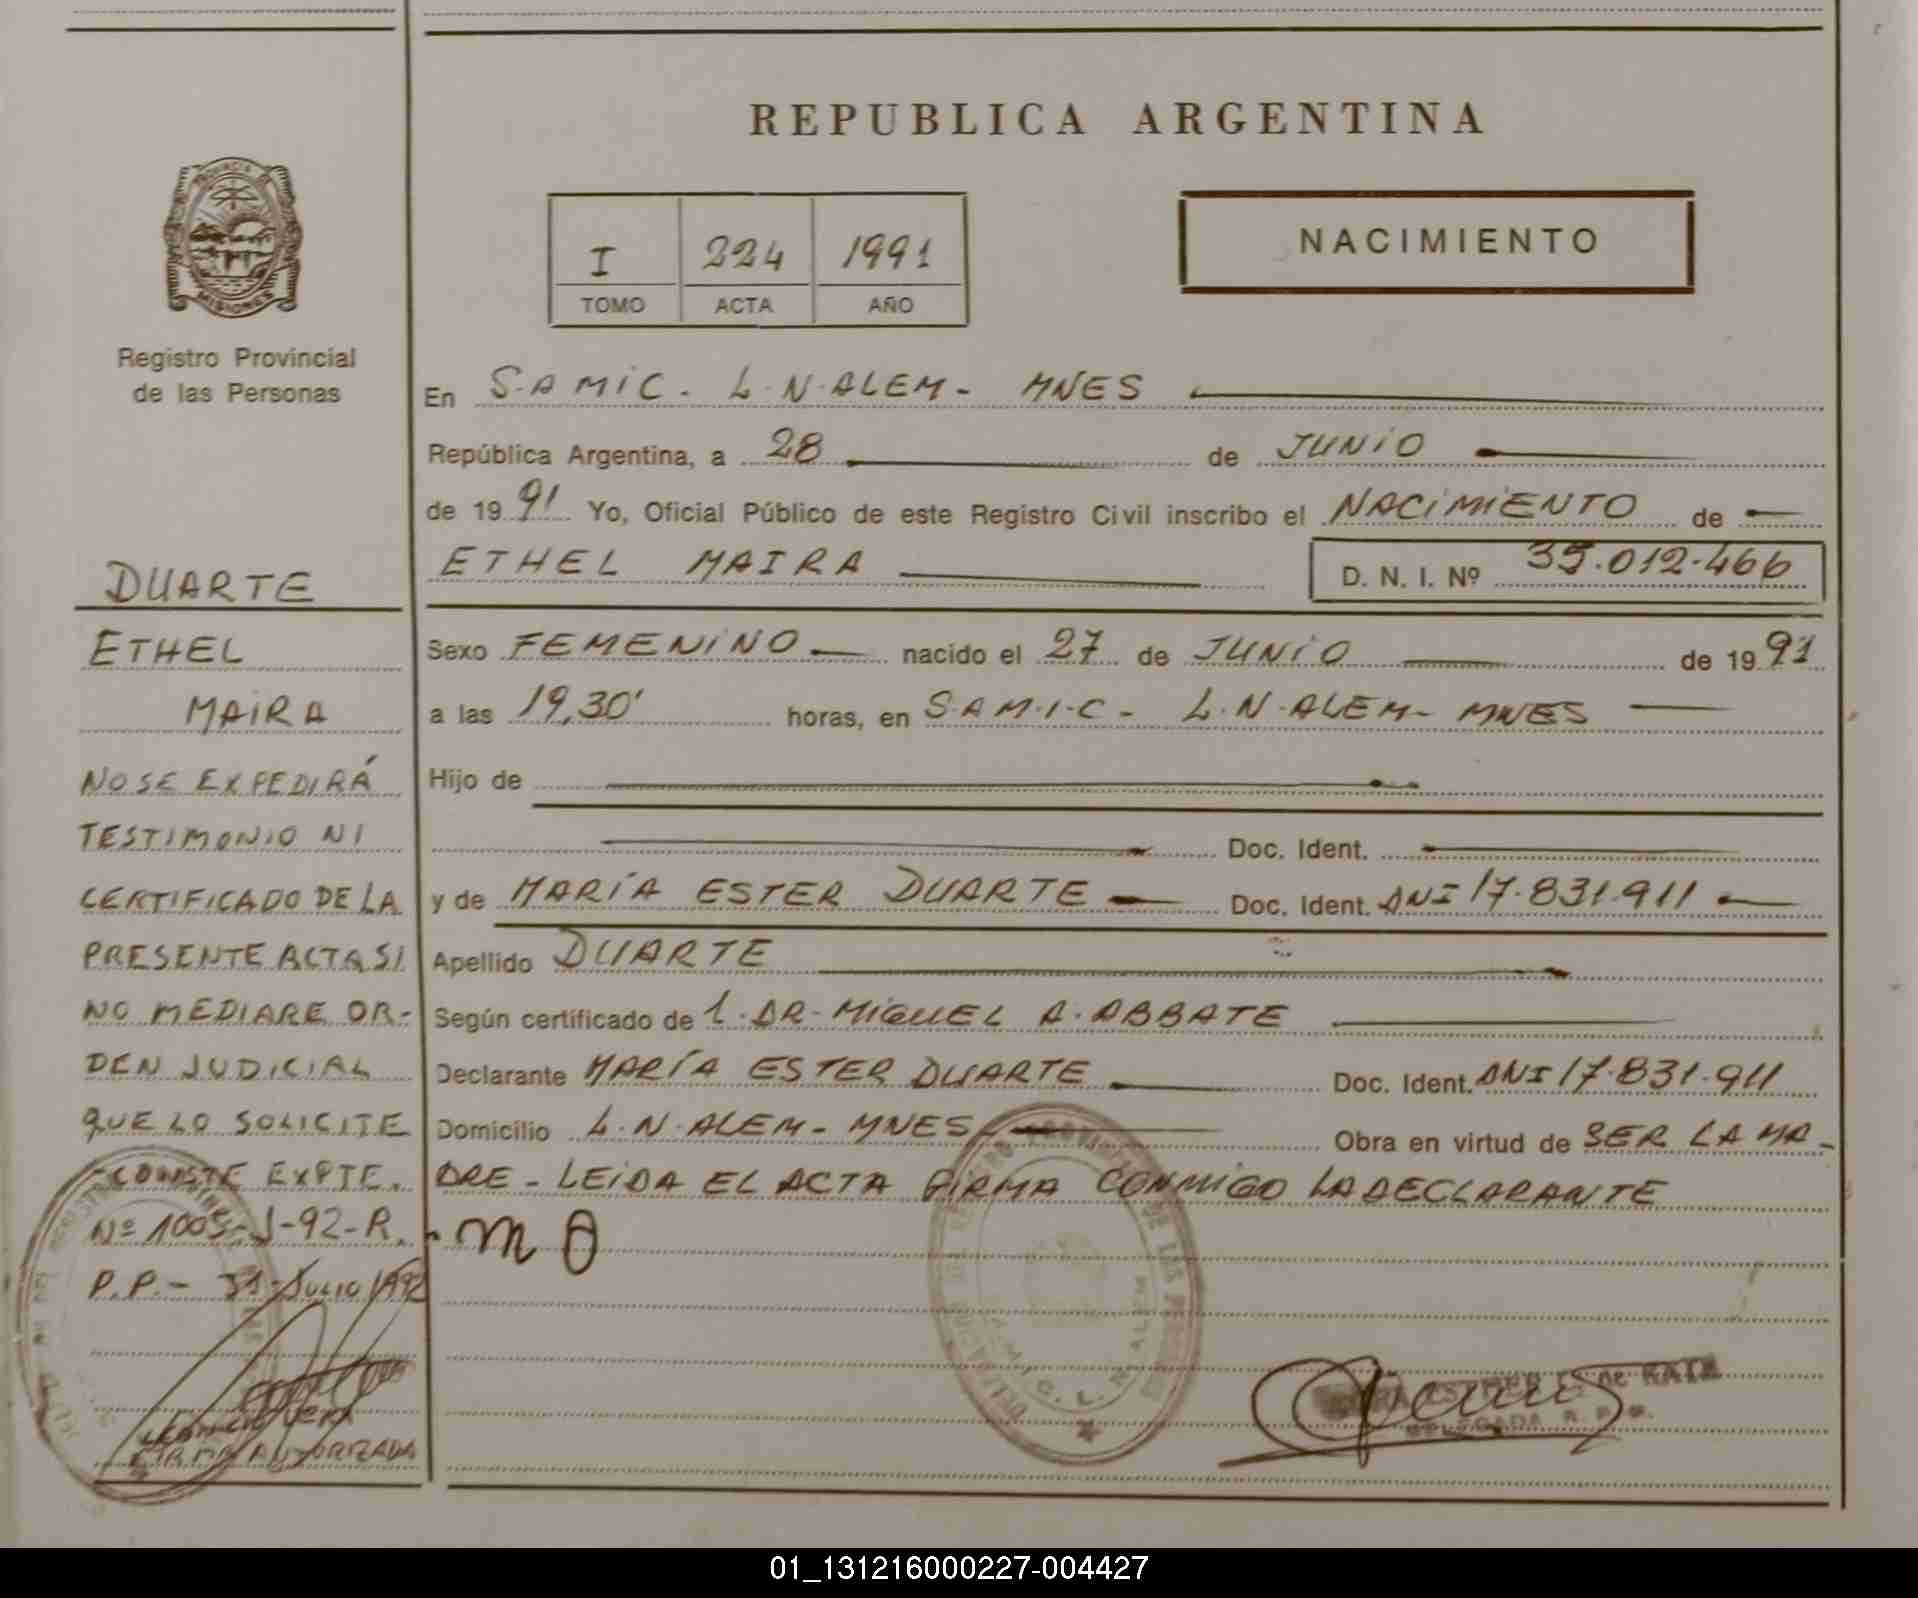 REPUBLICA ARGENTINA
PROVINCIA DE
MISIONES
Registro Provincial
de las Personas
I 224 1991
TOMO ACTA AÑO
NACIMIENTO
En S.A.MIC. L.N.ALEM- MNES
República Argentina, a 28 de JUNIO
de 1991 Yo, Oficial Público de este Registro Civil inscribo el NACIMIENTO de
ETHEL MAIRA D. N. I. Nº 35.012.466
Sexo FEMENINO nacido el 27 de JUNIO de 1991
a las 19,30' horas, en S.A.M.I.C- L.N.ALEM- MNES
Hijo de
Doc. Ident.
y de MARÍA ESTER DUARTE Doc. Ident. DNI 17.831.911
Apellido DUARTE
Según certificado de 1.DR.MIGUEL A.ABBATE
Declarante MARÍA ESTER DUARTE Doc. Ident. DNI 17.831.911
Domicilio L.N.ALEM- MNES Obra en virtud de SER LA MA-
DRE - LEIDA EL ACTA FIRMA CONMIGO LA DECLARANTE
DUARTE
ETHEL
MAIRA
NO SE EXPEDIRÁ
TESTIMONIO NI
CERTIFICADO DE LA
PRESENTE ACTA SI
NO MEDIARE OR-
DEN JUDICIAL
QUE LO SOLICITE
CONSTE EXPTE.
Nº 1005-J-92-R.
P.P.- 31-JULIO 1992
FIRMA AUTORIZADA
DELEGADA R. P. P.
01_131216000227-004427